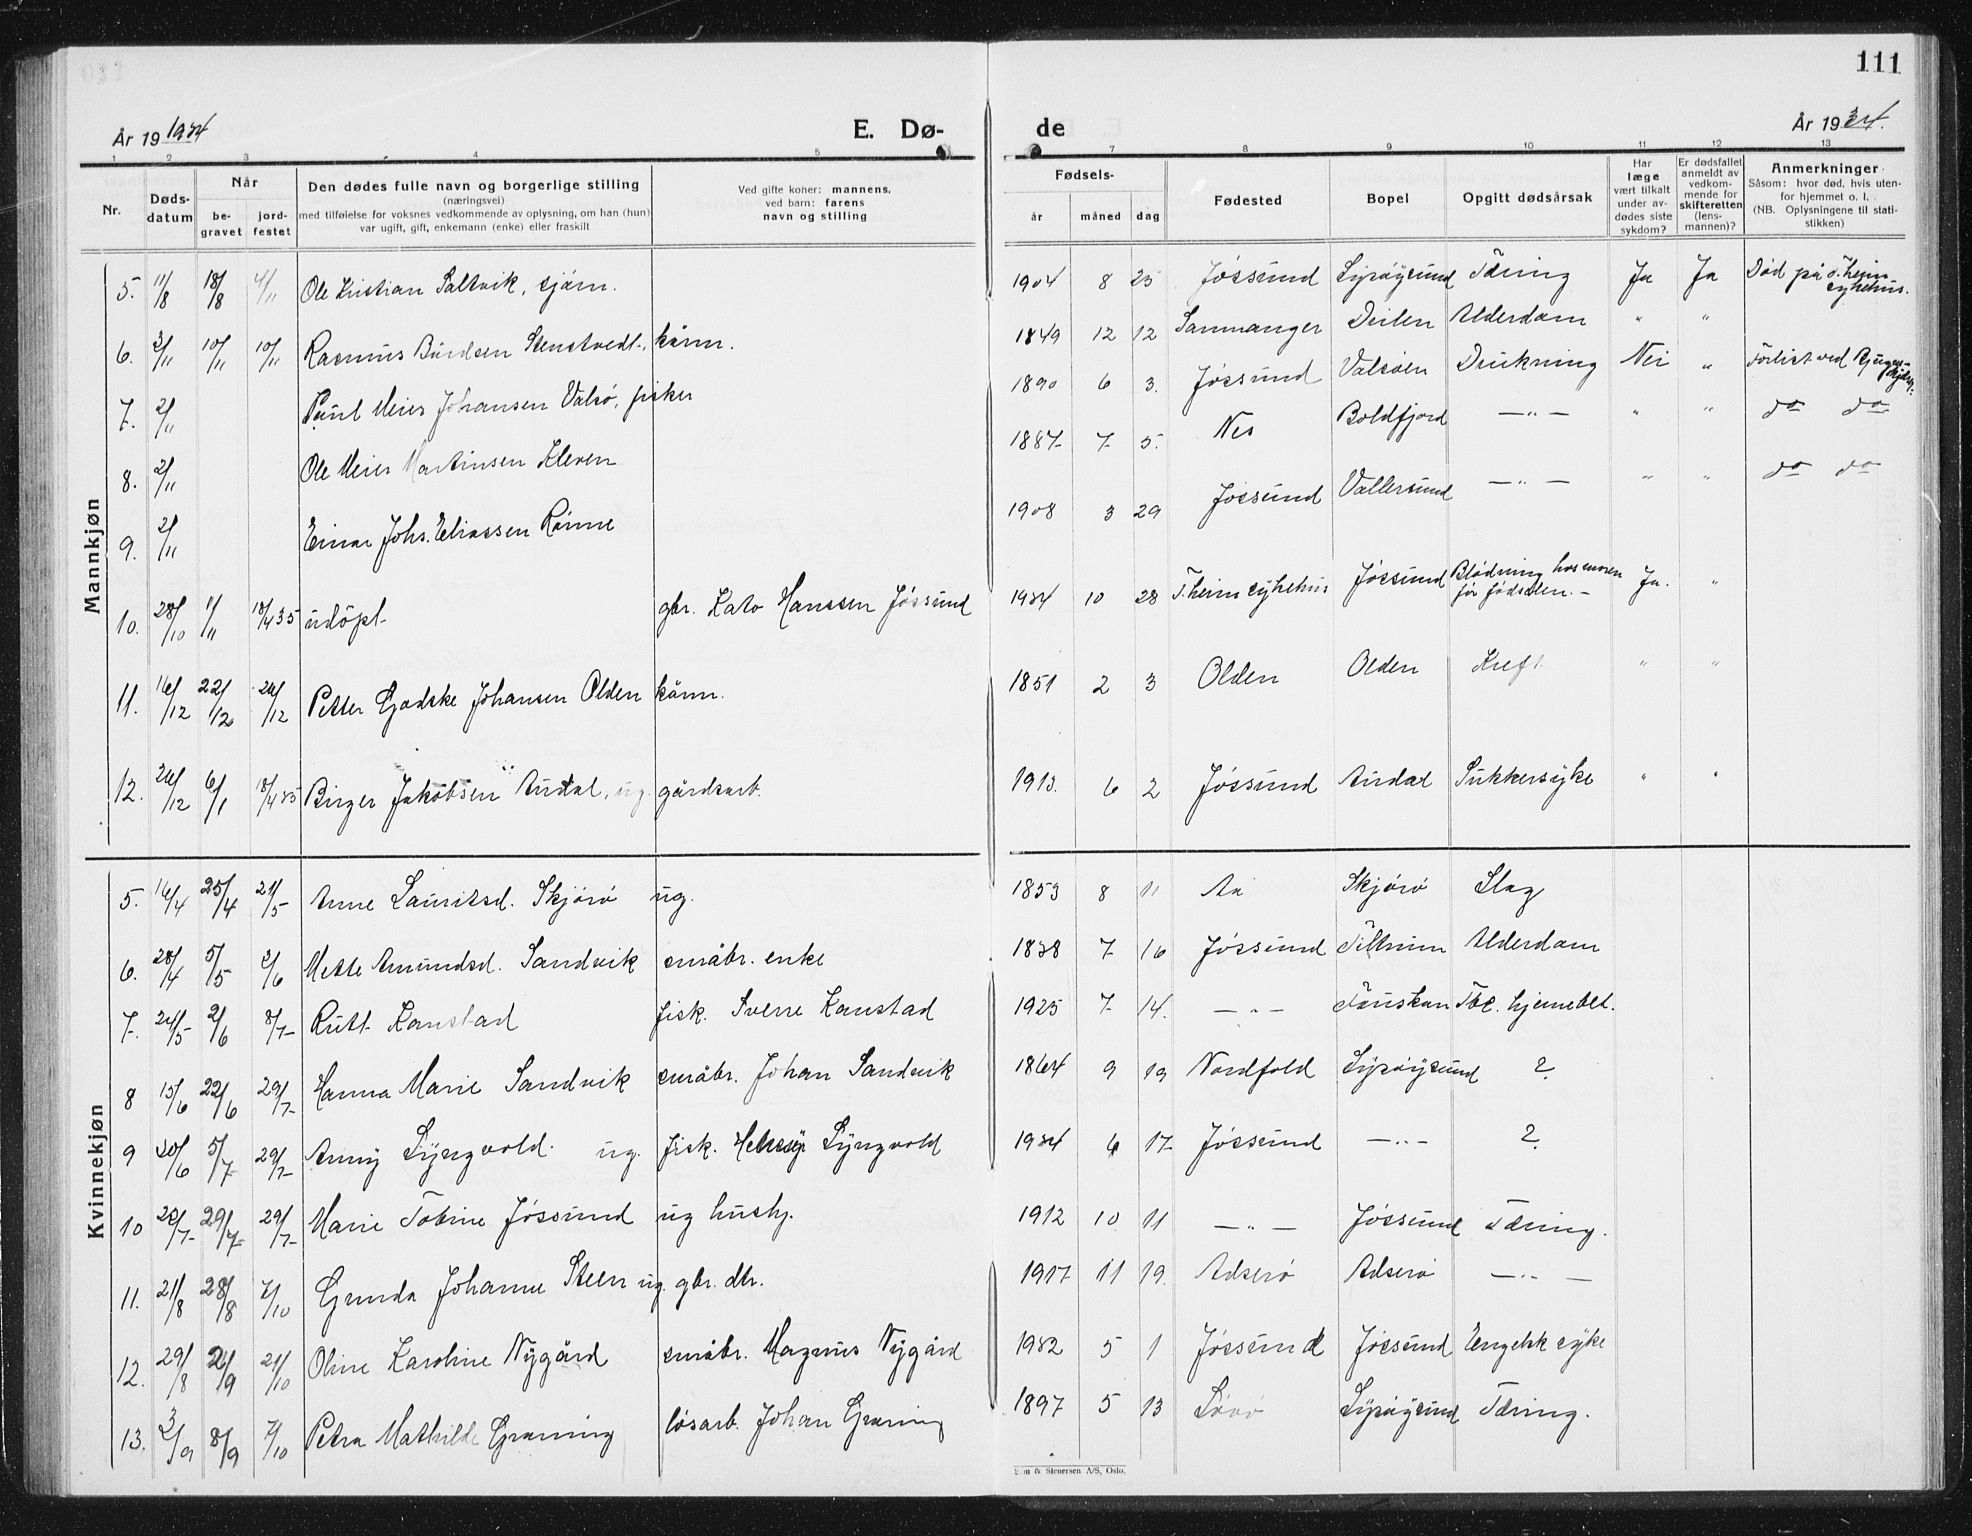 111
År 19 1934
E. Dø-
de
År 1934.
1 2 3 4 5 7 8 9 10 11 12 13
Nr.
Døds-
datum
Når
be-
gravet
jord-
festet
Den dødes fulle navn og borgerlige stilling
(næringsvei)
med tilføielse for voksnes vedkommende av oplysning, om han (hun)
var ugift, gift, enkemann (enke) eller fraskilt
Ved gifte koner: mannens,
ved barn: farens
navn og stilling
Fødsels-
år måned dag
Fødested
Bopel
Opgitt dødsårsak
Har
læge
vært tilkalt
under av-
dødes siste
sykdom?
Er dødsfallet
anmeldt av
vedkom-
mende for
skifteretten
(lens-
mannen)?
Anmerkninger
Såsom: hvor død, hvis uten-
for hjemmet o. l.
(NB. Oplysningene til stati-
stikken)
Mannkjøn
5. 11/8 18/8 4/11 Ole Kristian Saltvik, sjøm. 1904 8 25 Jøssund Lysøysund Tæring Ja Ja Død på T.heim sykehus.
6. 3/11 10/11 10/11 Rasmus Bårdsen Stenstvedt, kårm. 1849 12 12 Samnanger Deilen Alderdom " "
7. 2/11 Paul Meier Johansen Valsø, fisker 1890 6 3. Jøssund Valsøen Drukning Nei " Forlist ved
8. 2/11 Ole Meier Martinsen Kleven 1887 7 5. Nes Boldfjord —"— " " do do
9. 2/11 Einar Johs. Eliassen Rønne 1908 3 29 Jøssund Vallersund —"— " " do do
10. 28/10 1/11 18/4 35 udöpt gbr. Kato Hanssen Jøssund 1934 10 28 T.heim sykehus Jøssund Blödning hos moren før fødselen.- Ja. "
11. 16/12 22/12 26/12 Petter Godske Johansen Olden kårm. 1851 2 3 Olden Olden Kreft " "
12. 26/12 6/1 18/4 35 Birger Jakobsen Aurdal, ug. gårdsarb. 1913. 6 2 Jøssund Aurdal Sukkersyke " "
Kvinnekjøn
5. 16/4 25/4 21/5 Anne Lauritsd. Skjørø ug. 1853 8 11 Aa Skjørø Slag
6. 28/4 5/5 2/6 Mette Amundsd. Sandvik småbr. enke 1838 7 16 Jøssund Tiltrum Alderdom
7. 24/5 2/6 8/7 Rutt Kanstad fisk. Sverre Kanstad 1925 7 14. —"— Tbc. hjernebet.
8 15/6 22/6 29/7 Hanna Marie Sandvik småbr. Johan Sandvik 1864 9 19 Nordfold Lysøysund ?
9 30/6 5/7 29/7 Anny Lyngvold ug. fisk. Lyngvold 1934 6 17 Jøssund —"— ?
10 20/7 29/7 29/7 Marie Tobine Jøssund ug hushj. 1912 10 11 —"— Jøssund Tæring.
11. 21/8 28/8 7/10 Gunda Johanne Steen ug. gbr. dtr. 1917 11 19. Adserø Adserø —"—
12. 29/8 2/9 21/10 Oline Karoline Nygård småbr. Magnus Nygård 1932 5 1 Jøssund Jøssund Engelsk syke
13. 3/9 8/9 7/10 Petra Mathilde Grøning løsarb. Johan Grøning 1897 5 13 Løvø Lysøysund Tæring.
& Stenersen A/S, Oslo.